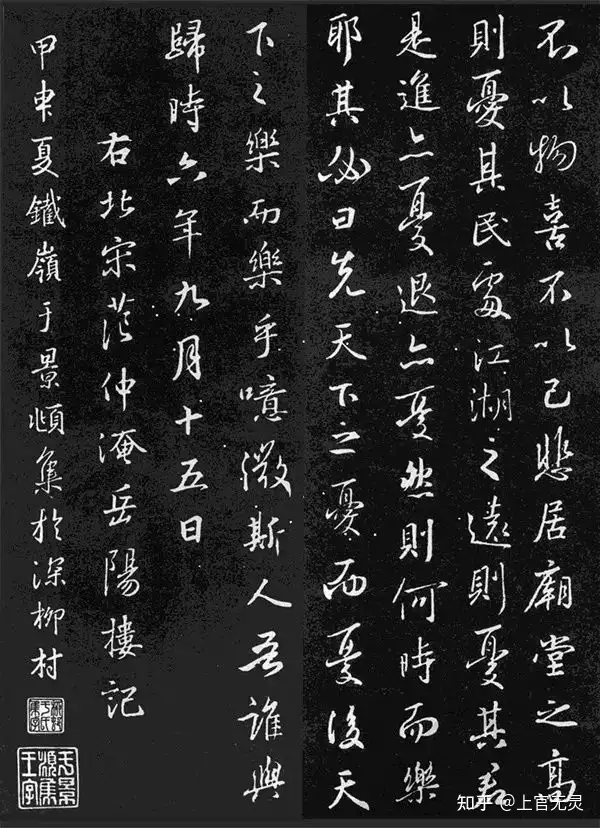 不以物喜不以己悲居廟堂之高
則憂其民處江湖之遠則憂其君
是進亦憂退亦憂然則何時而樂
耶其必曰先天下之憂而憂後天
下之樂而樂乎噫微斯人吾誰與
歸時六年九月十五日
右北宋范仲淹岳陽樓記
甲申夏鐵嶺于景頫集於深柳村
于景頫集王字
知乎 @上官无灵